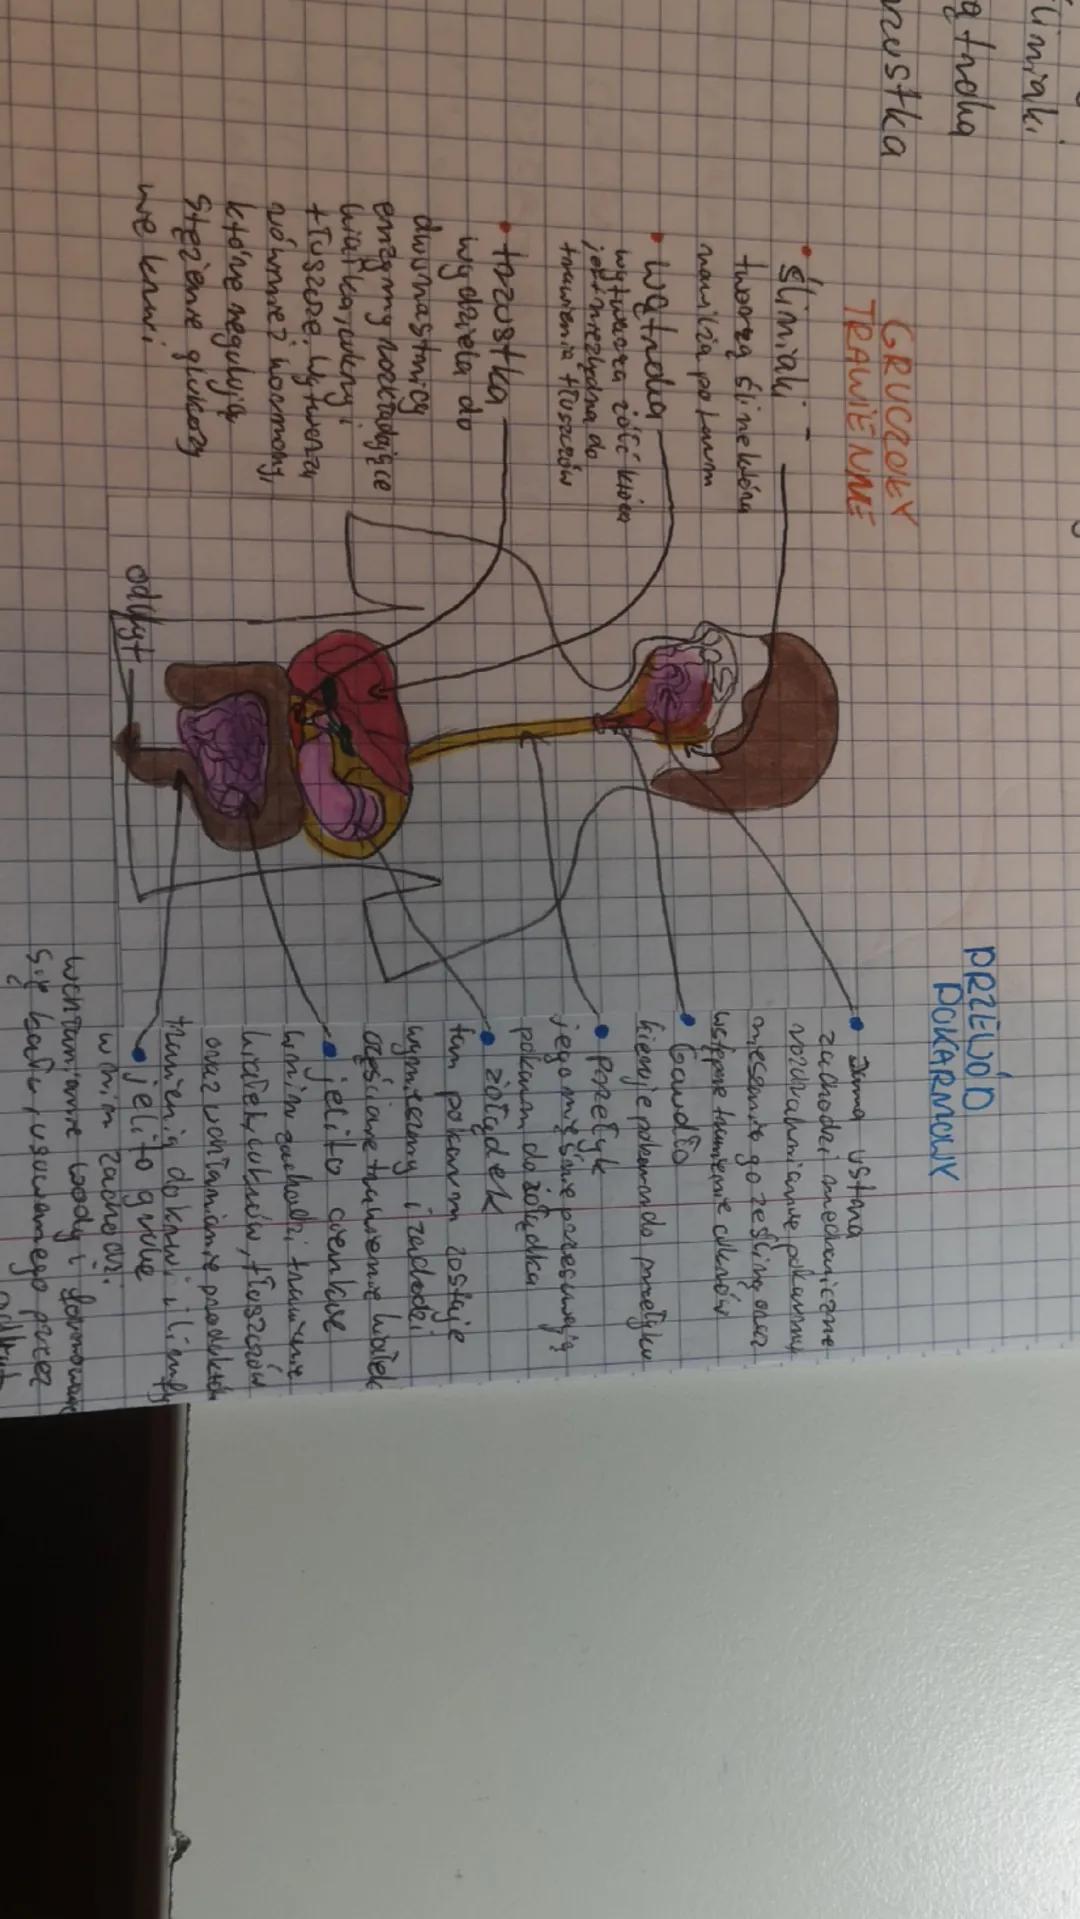 liniaki
ątroba
rzustka
GRUCZOŁY
TRAWIENNE
• ślinianki -
tworzą ślinę która
nawilża pokarm
• wątroba
wytwarza żółć która
jest niezbędna do
trawienia tłuszczów
• trzustka
wydziela do
dwunastnicy
enzymy rozkładające
białka, cukry i
tłuszcze. Wytwarza
również hormony,
które regulują
stężenie glukozy
we krwi.
odbyt
PRZEWÓD
POKARMOWY
• Jama ustna
zachodzi mechaniczne
rozdrabnianie pokarmu,
mieszanie go ze śliną oraz
wstępne trawienie cukrów
• Gardło
kieruje pokarm do przełyku
• Przełyk
jego mięśnie przesuwają
pokarm do żołądka
• żołądek
tam pokarm zostaje
wymieszany i zachodzi
częściowe trawienie białek
• jelito cienkie
w nim zachodzi trawienie
białek, cukrów, tłuszczów
oraz wchłanianie produktów
trawienia do krwi i limfy
• jelito grube
w nim zachodzi
wchłanianie wody i formowanie
się kału, usuwanego przez
odbyt